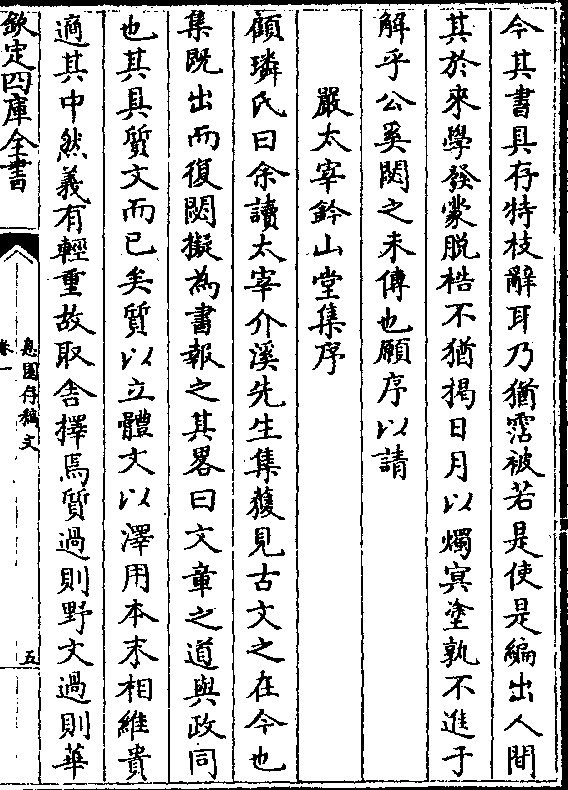 今其書具存特枝辭耳乃猶霑被若是使是編出人間
其於來學發蒙脱梏不猶揭日月以燭㝠塗孰不進于
解乎公奚閟之未傳也願序以請
嚴太宰鈐山堂集序
顧璘氏曰余讀太宰介溪先生集獲見古文之在今也
集既出而復閟擬為書報之其畧曰文章之道與政同
也其具質文而已矣質以立體文以澤用本末相維貴
適其中然義有輕重故取舍擇焉質過則野文過則華
欽定四庫全書
息園存稿文
卷一
五